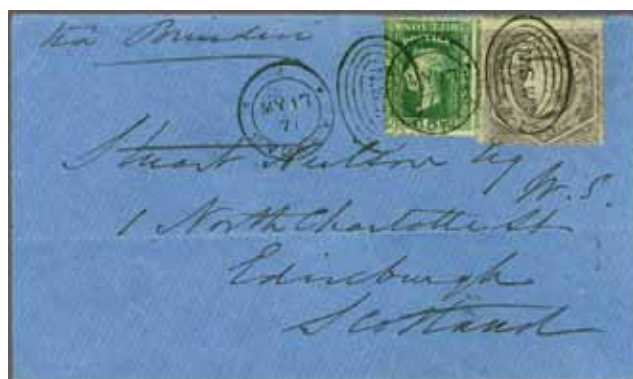 via Brindisi
MY 17
71
MY 17
NSW
Stuart Hutton Esq
W.S.
1 North Charlotte St
Edinburgh
Scotland